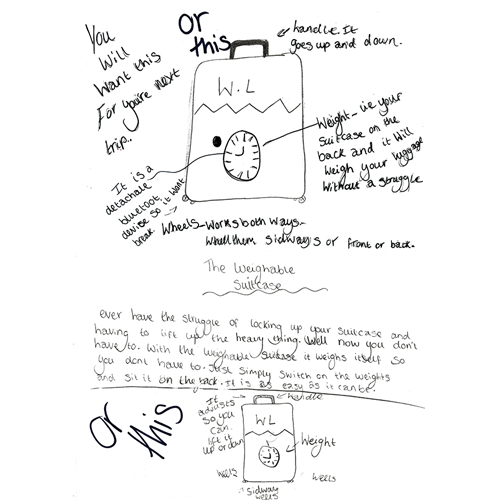 You
Will
Want this
For you're next
trip..
or
this
handle. It
goes up and down.
W.L
Weight - lie your
suitcase on the
back and it will
weigh your luggage
without a struggle
It is a
detachale
bluetoot
devise so it wont
break
Wheels - works both ways -
wheel them sidways or front or back.
The Weighable
Suitcase
ever have the struggle of locking up your suitcase and
having to lift up the heavy thing. Well now you don't
have to. With the weighable suitcase it weighs itself so
you dont have to. Just simply switch on the weights
and sit it on the back. It is as easy as it can be.
or
this
It
adjusts
so you
can
lift it
up or down
handle
W L
Weight
weels
weels
Sidway
weels